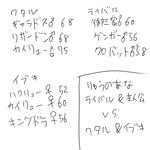 ワタル
ギャラドス♂68
リザードン♂68
カイリュー♂75
ライバル
御三家♂60
ゲンガー♂56
クロバット♂58
イブキ
ハクリュー♀52
カイリュー♀60
キングドラ♀56
りゅうのあな
ライバル&主人公
VS
ワタル&イブキ